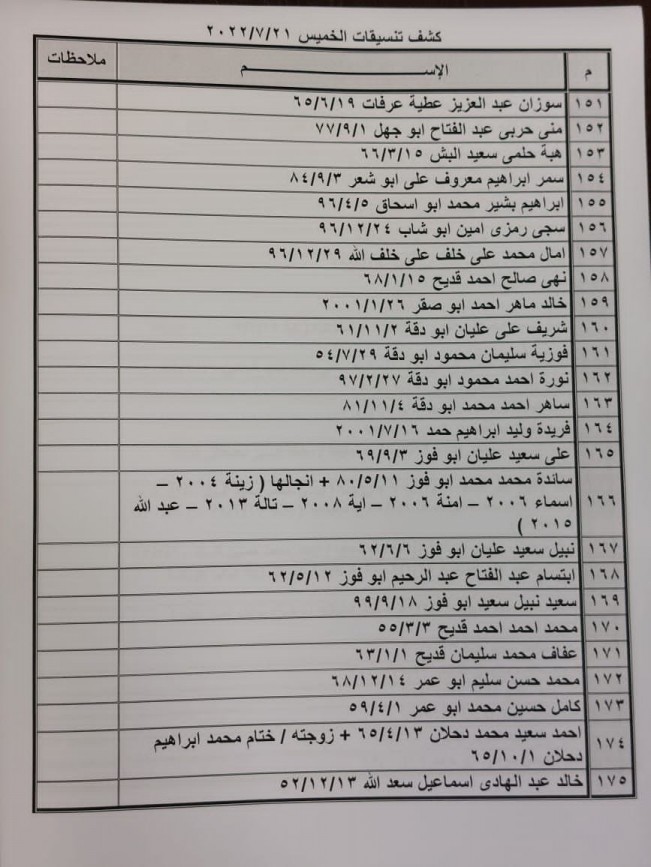 كشف تنسيقات الخميس ٢٠٢٢/٧/٢١
م الإســـم ملاحظات
١٥١ سوزان عبد العزيز عطية عرفات ٦٥/٦/١٩
١٥٢ منى حربى عبد الفتاح ابو جهل ٧٧/٩/١
١٥٣ هبة حلمى سعيد البش ٦٦/٣/١٥
١٥٤ سمر ابراهيم معروف على ابو شعر ٨٤/٩/٣
١٥٥ ابراهيم بشير محمد ابو اسحاق ٩٦/٤/٥
١٥٦ سجى رمزى امين ابو شاب ٩٦/١٢/٢٤
١٥٧ امال محمد على خلف على خلف الله ٩٦/١٢/٢٩
١٥٨ نهى صالح احمد قديح ٦٨/١/١٥
١٥٩ خالد ماهر احمد ابو صقر ٢٠٠١/١/٢٦
١٦٠ شريف على عليان ابو دقة ٦١/١١/٢
١٦١ فوزية سليمان محمود ابو دقة ٥٤/٧/٢٩
١٦٢ نورة احمد محمود ابو دقة ٩٧/٢/٢٧
١٦٣ ساهر احمد محمد ابو دقة ٨١/١١/٤
١٦٤ فريدة وليد ابراهيم حمد ٢٠٠١/٧/١٦
١٦٥ على سعيد عليان ابو فوز ٦٩/٩/٣
سائدة محمد محمد ابو فوز ٨٠/٥/١١ + انجالها ( زينة ٢٠٠٤ –
١٦٦ اسماء ٢٠٠٦ – امنة ٢٠٠٦ – اية ٢٠٠٨ – تالة ٢٠١٣ – عبد الله
٢٠١٥ )
١٦٧ نبيل سعيد عليان ابو فوز ٦٢/٦/٦
١٦٨ ابتسام عبد الفتاح عبد الرحيم ابو فوز ٦٢/٥/١٢
١٦٩ سعيد نبيل سعيد ابو فوز ٩٩/٩/١٨
١٧٠ محمد احمد احمد قديح ٥٥/٣/٣
١٧١ عفاف محمد سليمان قديح ٦٣/١/١
١٧٢ محمد حسن سليم ابو عمر ٦٨/١٢/١٤
١٧٣ كامل حسين محمد ابو عمر ٥٩/٤/١
١٧٤ احمد سعيد محمد دحلان ٦٥/٤/١٣ + زوجته / ختام محمد ابراهيم
دحلان ٦٥/١٠/١
١٧٥ خالد عبد الهادى اسماعيل سعد الله ٥٢/١٢/١٣